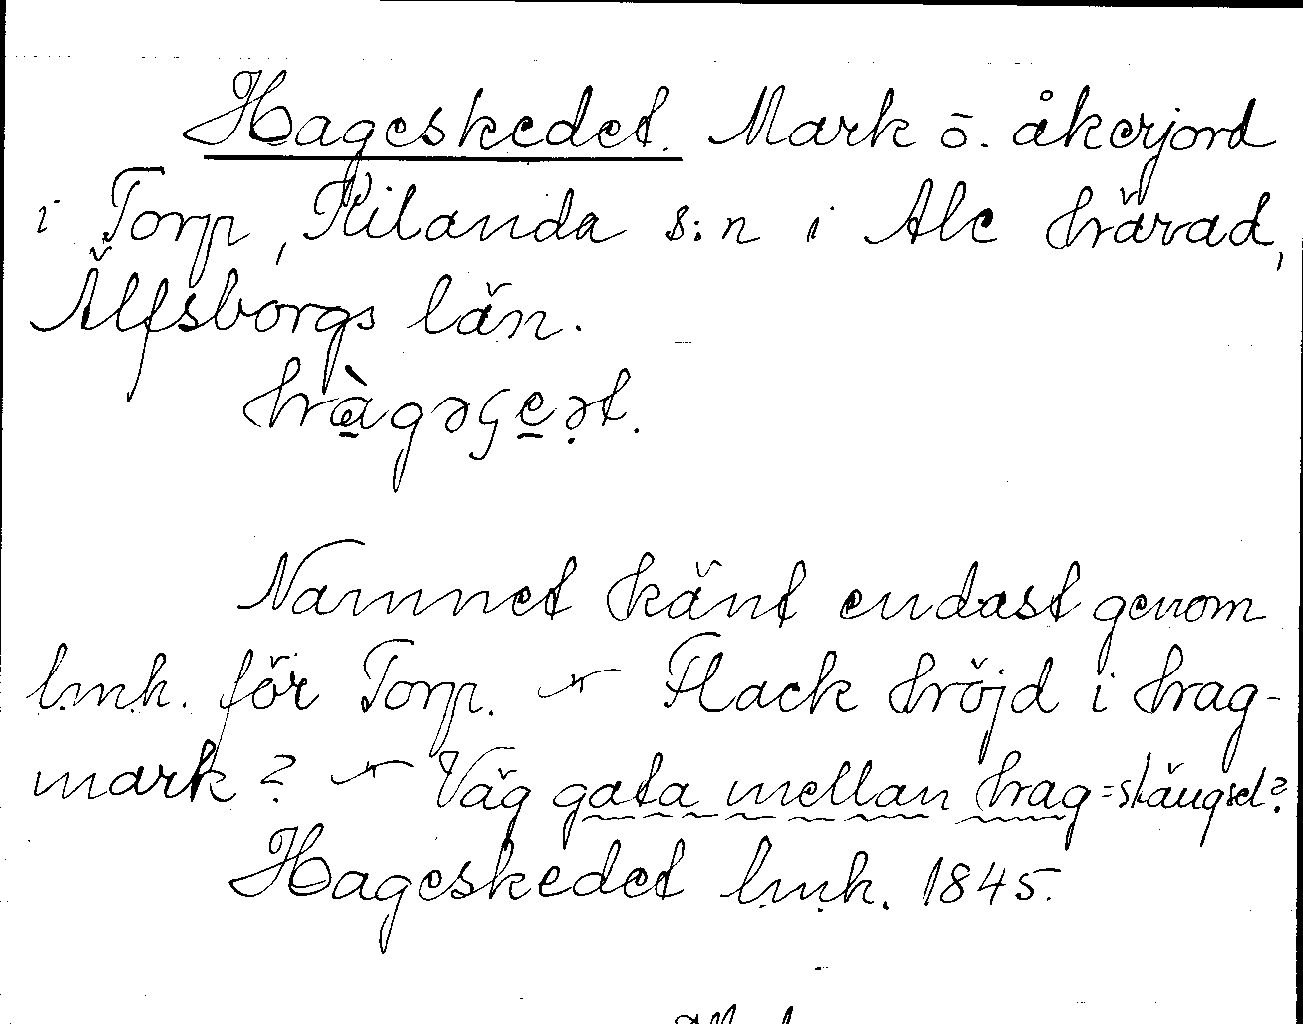 Hageskedet. Mark o. åkerjord
i Torp, Kilanda s:n i Ale härad,
Älfsborgs län.
hàgəʂeət.
Namnet känt endast genom
lmk. för Torp. — Flack höjd i hag-
mark? — Väg gata mellan hag=stängsel?
Hageskedet lmk. 1845.